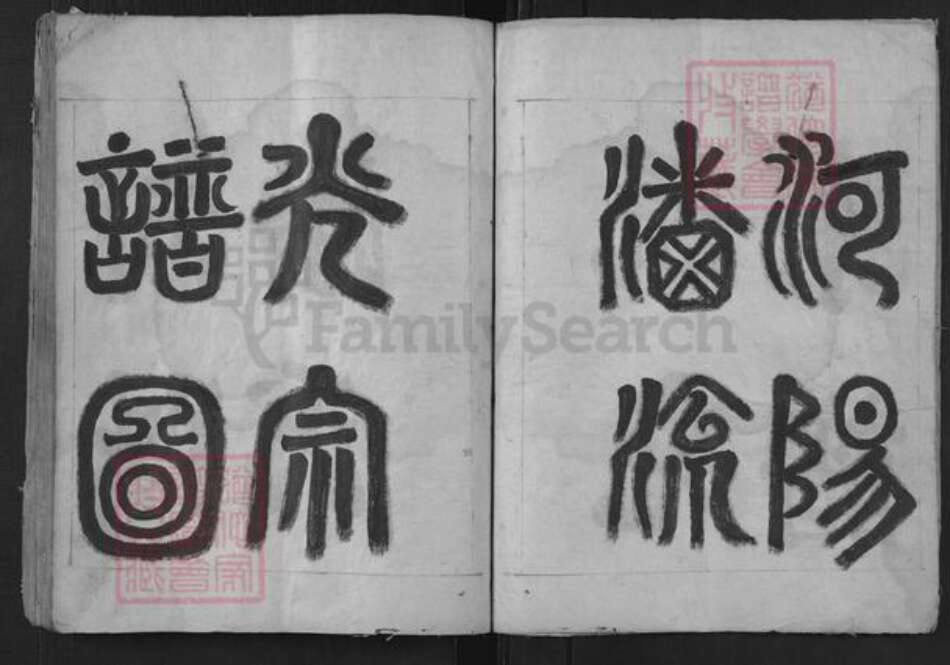 河陽
潘流
光宗
譜圖
FamilySearch